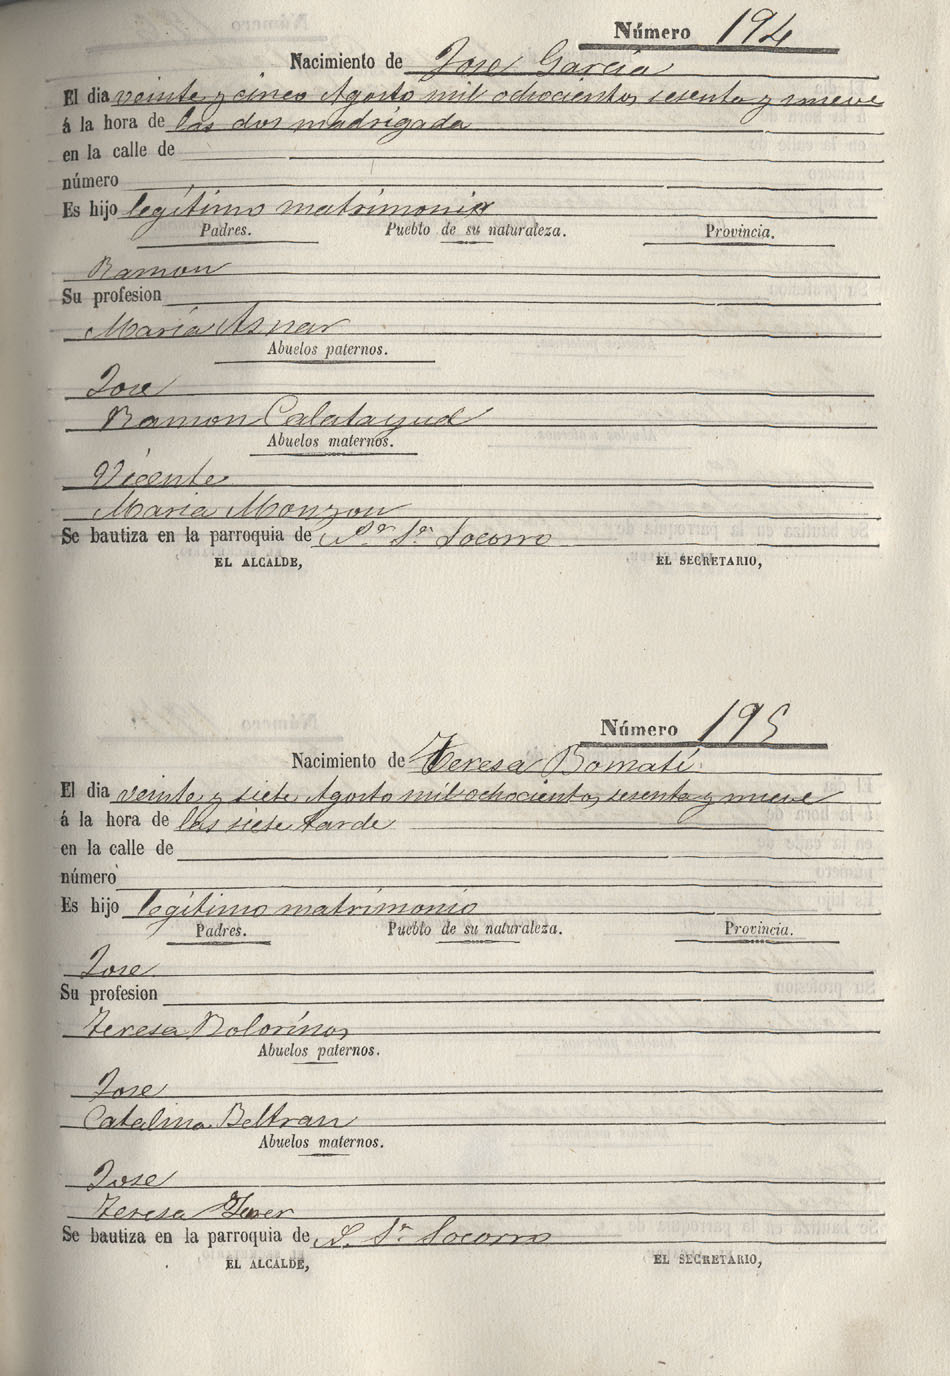 Número 194
Nacimiento de Jose García
El dia veinte y cinco Agosto mil ochocientos sesenta y nueve
á la hora de las dos madrigada
en la calle de
número
Es hijo legítimo matrimonio
Padres. Pueblo de su naturaleza. Provincia.
Ramon
Su profesion
María Asnar
Abuelos paternos.
Jose
Ramon Calatayud
Abuelos maternos.
Vicente
Maria Monzon
Se bautiza en la parroquia de Sra. Socorro
EL ALCALDE, EL SECRETARIO,
Número 195
Nacimiento de Teresa Bomatí
El dia veinte y siete Agosto mil ochocientos sesenta y nueve
á la hora de las siete tarde
en la calle de
número
Es hijo legítimo matrimonio
Padres. Pueblo de su naturaleza. Provincia.
Jose
Su profesion
Teresa Bolorinos
Abuelos paternos.
Jose
Catalina Beltran
Abuelos maternos.
Jose
Teresa
Se bautiza en la parroquia de Socorro
EL ALCALDE, EL SECRETARIO,